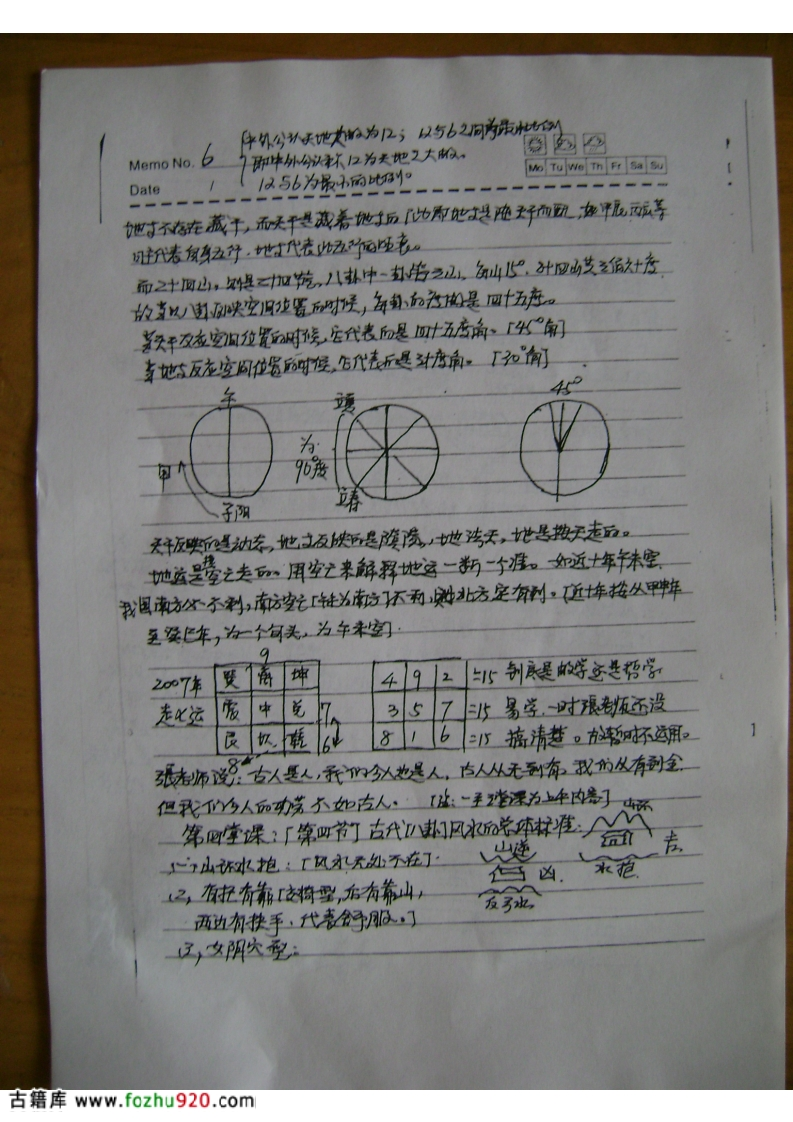 中外公认天地为12；12562同为最小比例
Memo No. 6 即中外公认 12为天地之大的。
Mo Tu We Th Fr Sa Su
Date 1 1256为最小的比例。
地支不存在藏干，而天干是藏着地支后「此即地支是随天干而 如甲辰、丙辰等
代表自身五行，地支代表此五行的旺衰。
而二十四山，则是二十四节气。八卦中一卦管三山，每山15°，24四山共三佰六十度
故当以八卦反映空间位置的时候，每卦的度数是四十五度。
若天干反应空间位置的时候，它代表的是四十五度角。「45°角」
若地支反应空间位置的时候，它代表的是30度角。「30°角」
午
立夏
45°
甲
为
90°度
子阳
立春
天干反映的是动态，地支反映的是 地法天，地是按天走的。
地运是按空亡走的。用空亡来解释地运一断一个准。如近十年午未空，
我国南方 不利，南方空亡「午未为南方」不利，则北方定有利。「近十年按从甲申年
至癸巳年，为一个旬头，为午未空」
9
2007年 巽 离 坤 4 9 2 =15 到底是数学还是哲学
走8运 震 中 兑 7 3 5 7 =15 易学，一时张老师还没
艮 坎 乾 6 8 1 6 =15 搞清楚。故暂时不运用。
8
张老师说：古人是人，我们今人也是人，古人从无到有，我们从有到全
但我们今人的功劳不如古人。「注：一至3堂课为上午内容」
第四堂课：「第四节」古代「八卦」风水的总体标准： 山环
(1) 山环水抱：「风水无处不在」 山逆 吉
凶 水抱
(2) 有把有靠「交椅型，后有靠山， 反弓水
两边有扶手，代表舒服。」
(3) 女阴穴型：
古籍库 www.fozhu920.com